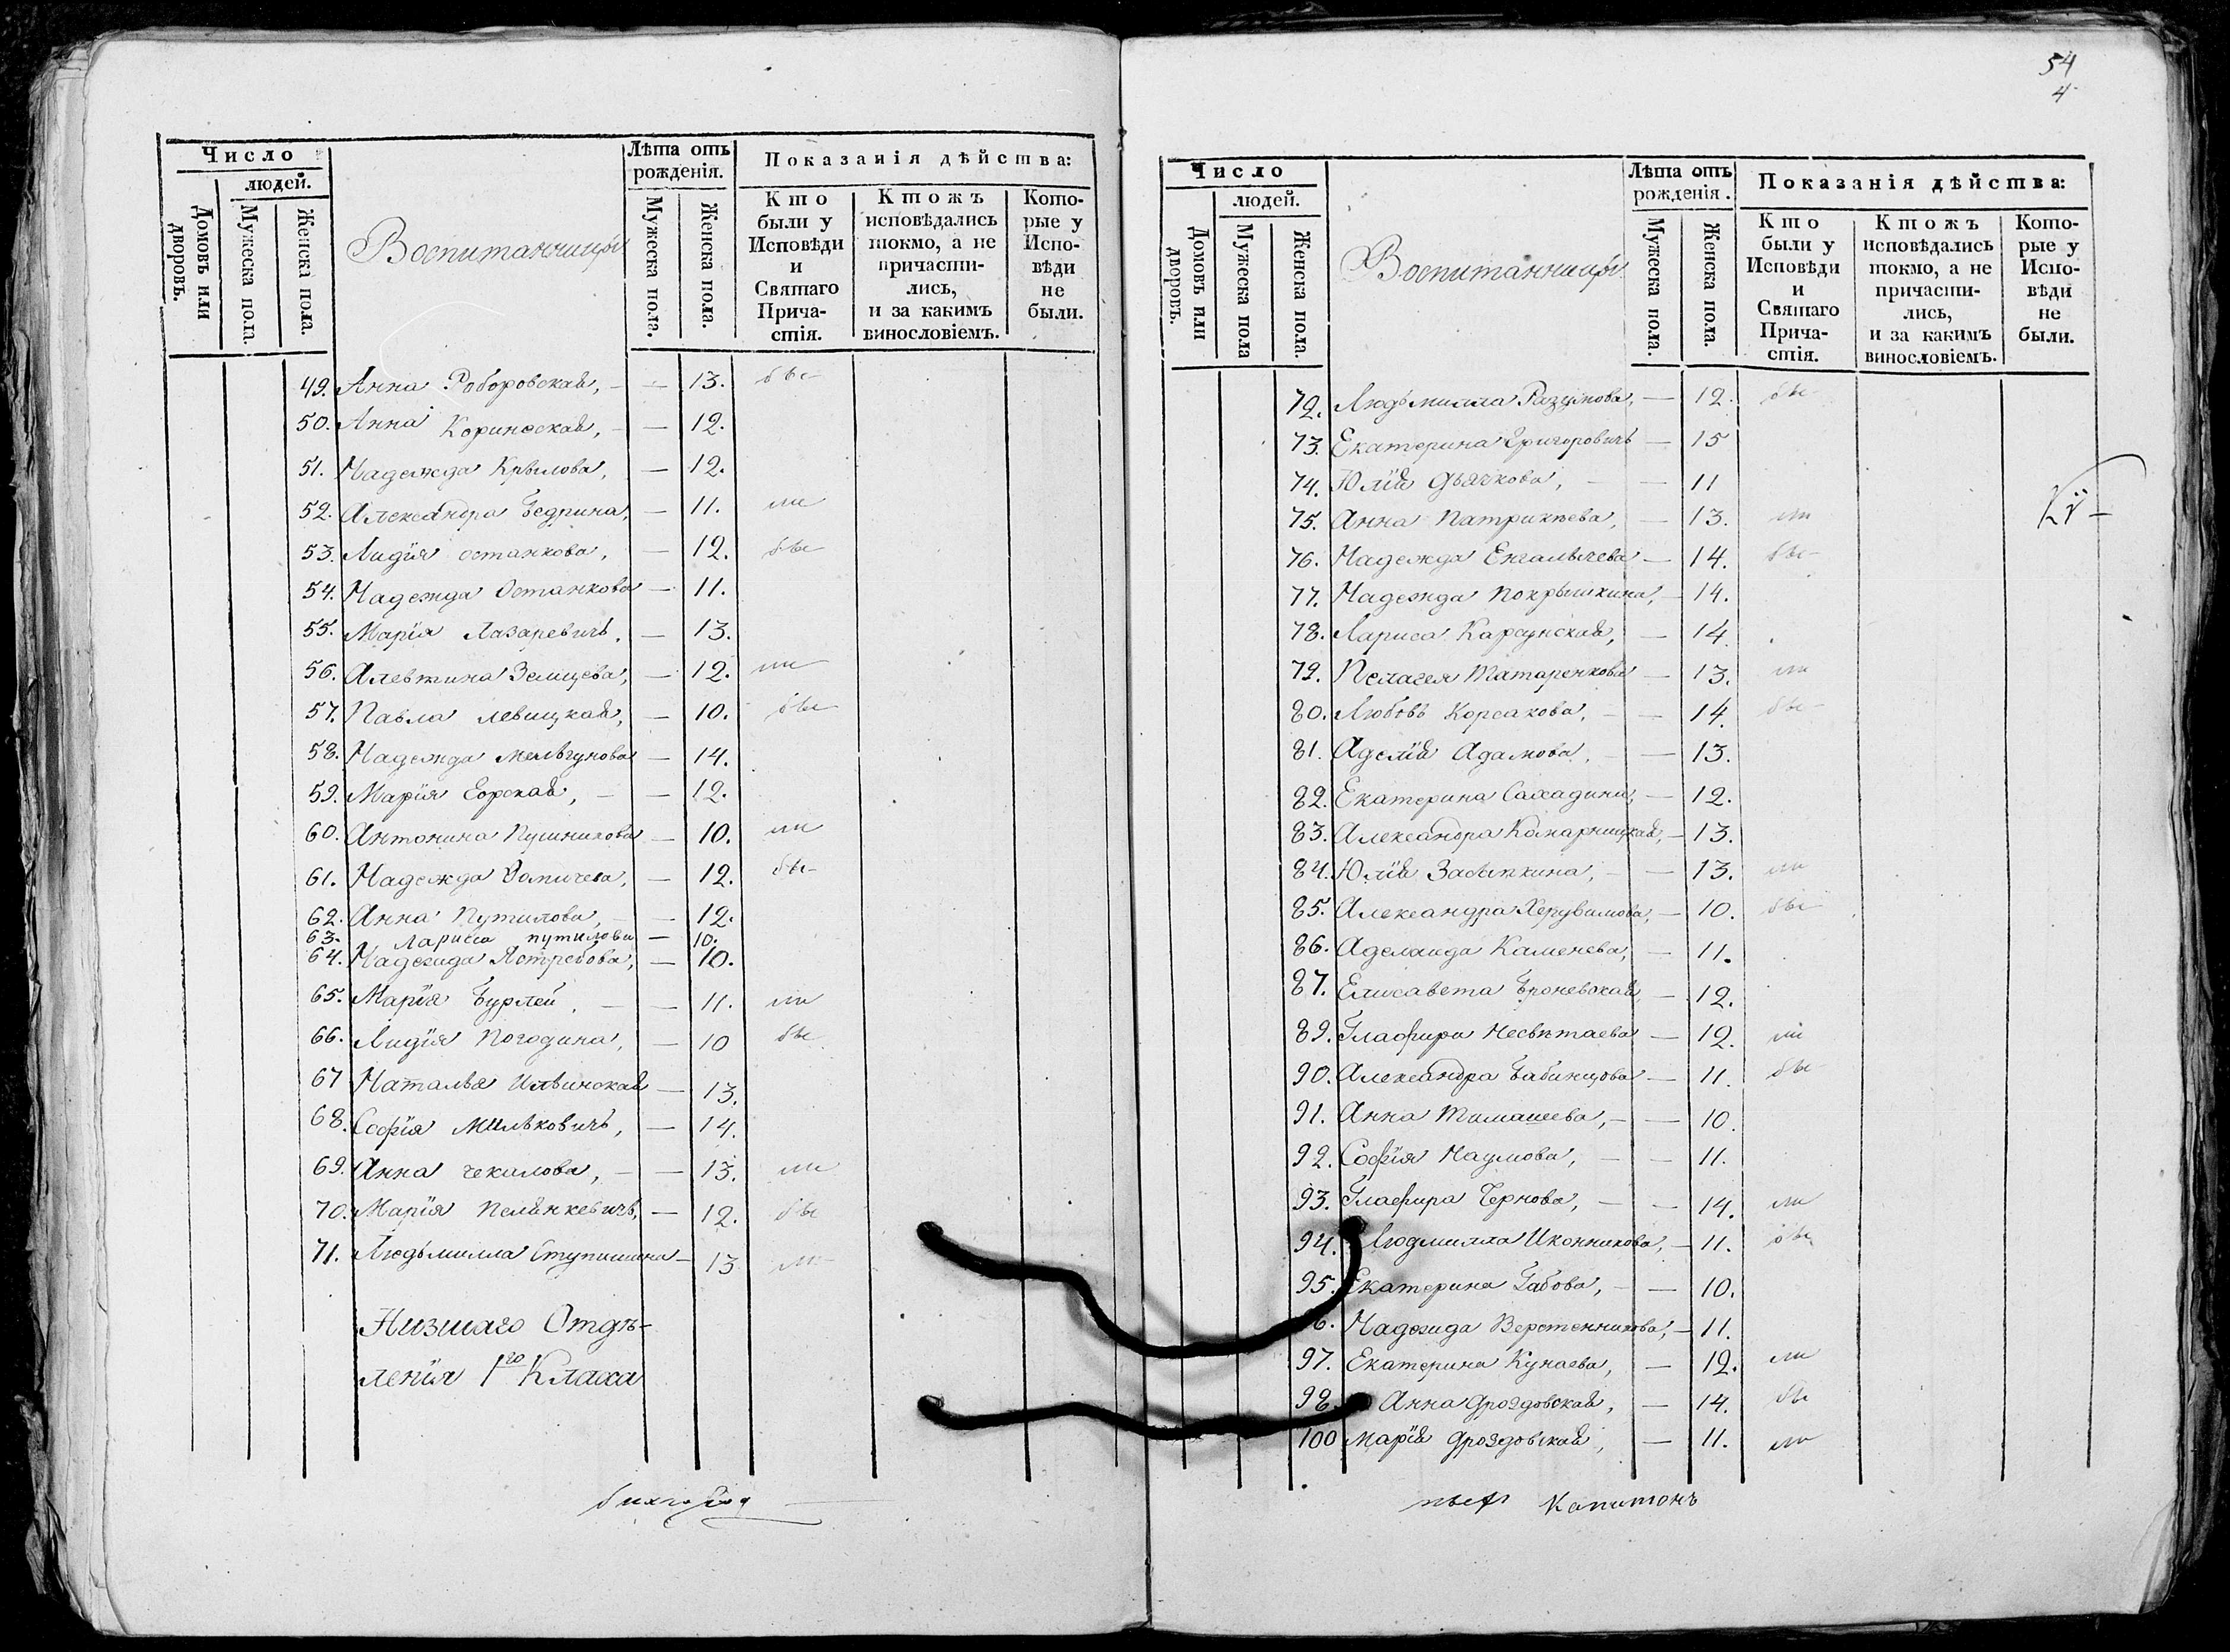 Число
людей.
Домовъ или дворовъ.
Мужеска пола.
Женска пола.
Воспитанницы
Лѣта отъ рожденія.
Мужеска пола.
Женска пола.
Показанія дѣйства:
Кто были у Исповѣди и Святаго Прича- стія.
Ктожъ исповѣдались токмо, а не причасти- лись, и за какимъ винословіемъ.
Кото- рые у Испо- вѣди не были.
49. Анна Роборовская, — 13. бы
50. Анна Коринская, — 12.
51. Надежда Крылова, — 12.
52. Александра Бедрина, — 11. ли
53. Лидія Останкова, — 12. бы
54. Надежда Останкова — 11.
55. Марія Лазаревичъ, — 13.
56. Алевтина Земцева, — 12. ли
57. Павла Левицкая, — 10. бы
58. Надежда Мельгунова — 14.
59. Марія — 12.
60. Антонина Пушникова — 10. ли
61. Надежда — 12. бы
62. Анна Путилова, — 12.
63. Лариса Путилова — 10.
64. Надежда Ястребова, — 10.
65. Марія Бурлей, — 11. ли
66. Лидія Погодина, — 10 бы
67 Наталья Ильинская — 13.
68. Софія Мильковичъ, — 14.
69. Анна Чекалова, — 13. ли
70. Марія Пелинкевичъ, — 12. бы
71. Людьмилла Ступишина — 13 ли
Низшаго Отдѣ-
ленія 1го Класа
54
4
Число
людей.
Домовъ или дворовъ.
Мужеска пола
Женска пола.
Воспитанницы
Лѣта отъ рожденія.
Мужеска пола.
Женска пола.
Показанія дѣйства:
Кто были у Исповѣди и Святаго Прича- стія.
Ктожъ исповѣдались токмо, а не причасти- лись, и за какимъ винословіемъ.
Кото- рые у Испо- вѣди не были.
72. Людьмилла Разумова, — 12. бы
73. Екатерина Григоровичъ — 15
74. Юлія Дьячкова, — 11
75. Анна Патрикѣева, — 13. ли
76. Надежда Енгалычева — 14. бы
77. Надежда Покрышкина, — 14.
78. Лариса Карсунская, — 14.
79. Пелагея Татаренкова — 13. ли
80. Любовь Корсакова, — 14. бы
81. Аделія Адамова, — 13.
82. Екатерина — 12.
83. Александра Комарницкая, — 13.
84. Юлія Засыпкина, — 13. ли
85. Александра Херувимова, — 10. бы
86. Аделаида Каменева, — 11.
87. Елисавета Броневская — 12.
89. Глафира Несвѣтаева — 12. ли
90. Александра Бабинцова — 11. бы
91. Анна Тимашева, — 10.
92. Софія Наумова, — 11.
93. Глафира Чернова, — 14. ли
94. Людмилла Иконникова, — 11. бы
95. Екатерина Габова, — 10.
6. Надежда Веретенникова, — 11.
97. Екатерина Кунаева, — 12. ли
98. Анна Дроздовская, — 14. бы
100 Марія Дроздовская, — 11. ли
Капитонъ